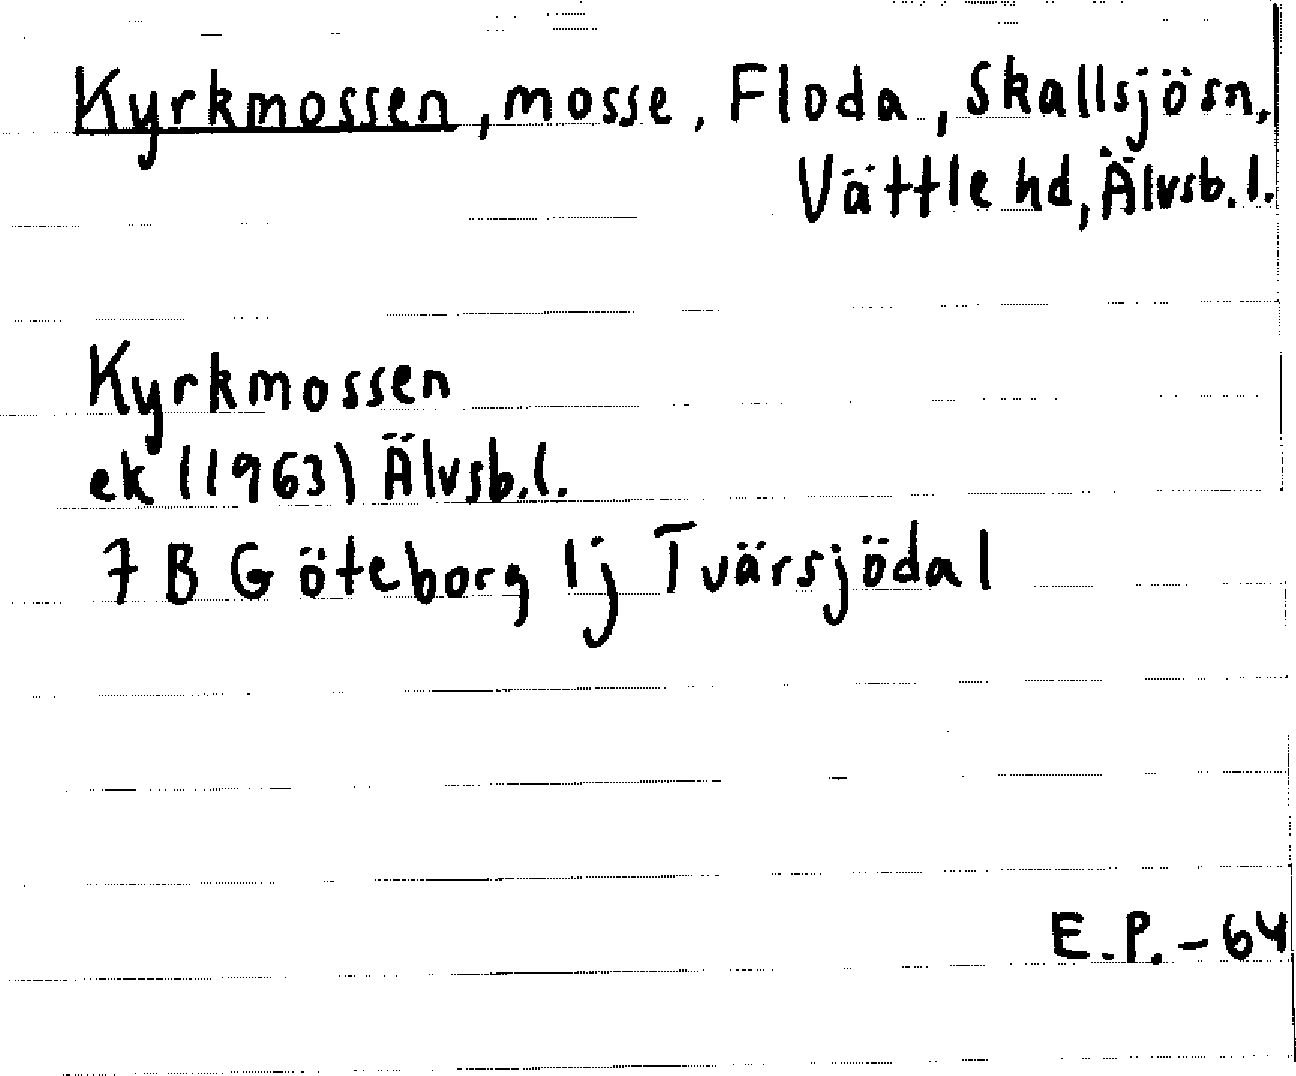 Kyrkmossen, mosse, Floda, Skallsjösn,
Vättle hd, Älvsb. l.
Kyrkmossen
ek (1963) Älvsb. l.
7 B Göteborg 1j Tvärsjödal
E.P. - 64